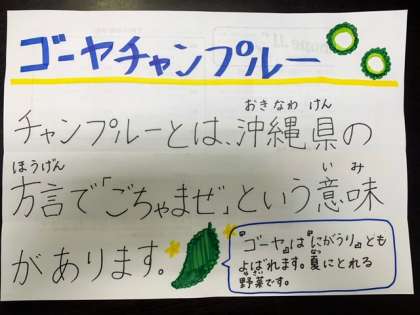 ゴーヤチャンプルー
おきなわ けん
チャンプルーとは、沖縄県の
ほうげん いみ
方言で「ごちゃまぜ」という意味
があります。
『ゴーヤ』は『にがうり』とも
よばれます。夏にとれる
野菜です。